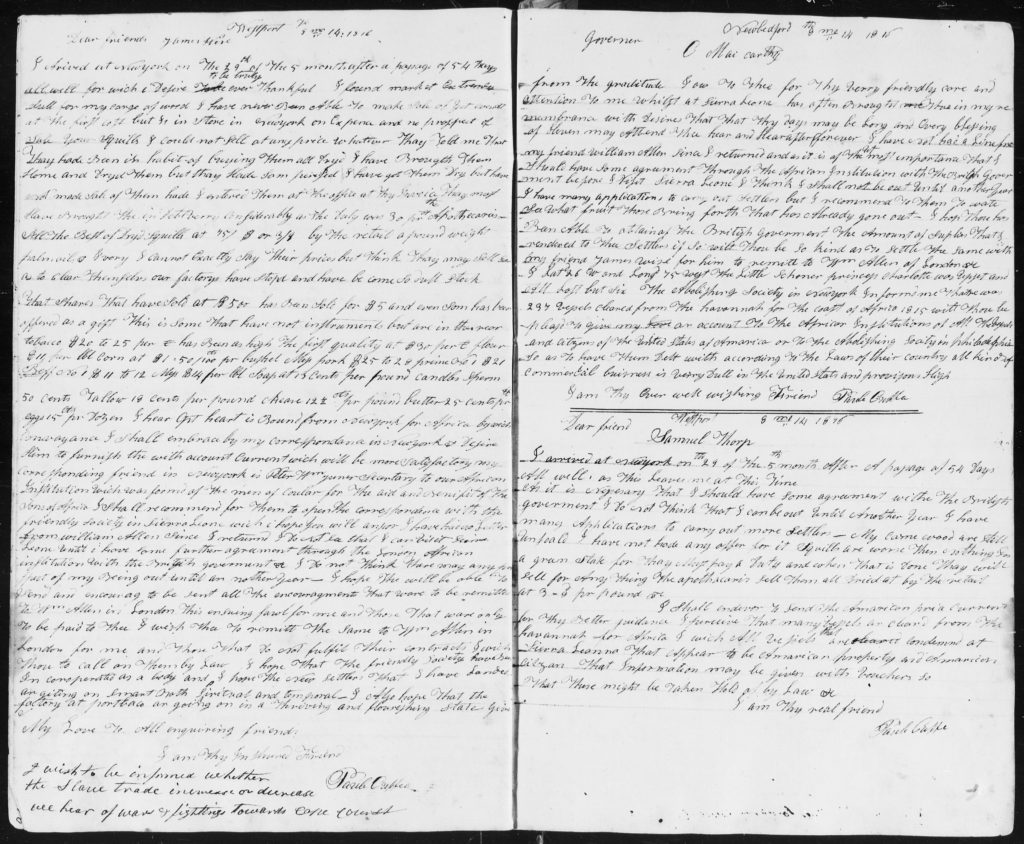 Westport 8 mo 14th 1816
Dear friend James Wise
I arived at Newyork on The 29th of the 5 month after a passage of 54 days
to be truly
all well for wich i Desire ever thankful I found market Extremely
Dull for my cargo of wood I have never Been Able To make Sale of but
at the first cost but is in Store in Newyork on Expence and no prospect of
Sale Your Squills I could not Sell at any price whatever Thay Told me That
Thay hade Been in habit of buying Them all Dryd I have Brought Them
Home and Dryd Them but thay hade Sum perished I have got them Dry but have
not made Sale of Them hade I entred Them at the office at thy Invoice They must
have Brought the in Debt very Considerably as the Duty was 30 Apothecaries
Sell the Best of Dryd Squills at or 3/8 by the retail a pound weight
palm oil & Ivory I Cannot Exactly Say Their prices but Think Thay may Sell
as to clear Themselves our factorys have Stopd and have be come So Dull Slack
That Shares That have Sold at $500 has Ben Sole for $5 and even Som has ben
offered as a gift This is Some that have not instrument but are in the rear
tobacco $20 to 25 per has Ben as high The first quality at $30 per flour
$11 per bbl Corn at $1.50 per bushel Mess pork $25 to 28 prime No 1 $21
Beff No 1 $11 to 12 Mess $14 per bbl Soap at 18 Cents per pound candles Sperm
50 cents Tallow 18 Cents per pound cheese 12½ cts per pound butter 25 Cents pr
eggs 15 cts pr Dozen I hear Cpt heart is Bound from Newyork for Africa by wich
Convayana I Shall embrace by my Correspondance in Newyork & Desire
Him to furnish the with account Current wich will be more Satisfactory my
corresponding friend in Newyork is Peter Wms Juner Secretary to our African
Institution wich was formd of the men of Coular for the aid and Benifit of the
Sons of Africa I Shall recommend for Them to open the correspondance with the
friendly Society in Sierra Leone wich i hope You will anser I have hade no Letter
from William Allen Since I returnd I Do not See that I can Visit Sierra
Leone until i have some further agreement through the London African
institution with the British goverment & I Do not Think there may any
of my Being out until an nother year — I hope The will be able To
Send and encourag to be sent all the encouragment That ware to be remitted
to Wm Allen in London this ensuing fawl for me and Those That ware only
to be paid to thee I wish thee to remitt the Same to Wm Allen in
London for me and Those That Do not fulfil Their contracts I wish
Thou to call on Them by Law I hope That the friendly Society have
In corporated as a body and I hope the New Settlers That I have Landed
ar giting on Smart Both Spiritual and temporal — I Also hope That the
factory at portbaco ar going on in a Thriving and flourishing State Give
My Love To All enquiring friends
I am thy Inshored Friend
I wish to be informed whether
the Slave trade increase or decrease Paul Cuffe
we hear of wars & fightings towards Cape Coast
Newbedford 8th mo 14 1816
Governer
C Mac carthy
from the gratitude I ow To Thee for Thy Verry friendly care and
attention To me whilst at Sierra Leone has often Brought thee in my re
membrance with Desires That That thy days may be long and Every blessing
of Heven may Attend Thee hear and Hearafter forever I have not had a Line from
my friend William Allen Since I returned and as it is of the most importance That I
Should have Some agreement Through the African Institution with the British Gover
ment before I Visit Sierra Leone I Think I Shall not be out Until another Year
I have many applications to carry out Settlers but I recommend to Them To wate
See what fruit Those Bring forth That has Already gone out — I hope Thou has
Ben Able To obtain of the British Goverment The Amount of Suplies That I
rendered To the Settlers if So wilt Thou be So kind as to Settle the Same with
my friend James Wise for him to remitt to Wm Allen of London &c
I Lat 26 N and Long 75 west The Little Schoner princess charlotte was upset and
All lost but Six The Abolishing Society in Newyork Inform me That was
237 Vessels Cleared from The havannah for The Coast of Africa 1815 wilt Thou be
pleasd to Give my or account To The African Institutions of All The Vessels
and Citizens of The United States of America or To the Abolishing Society in Philadelphia
So as To have Them Delt with according to The Laws of their country all kind of
commercial business is Verry Dull in The United States and provisions High
I am Thy Ever well wishing Friend Paul Cuffe
Westport 8 mo 14 1816
Dear friend
Samuel Thorp
I arrived at Newyork on 29 of the 5th month After A passage of 54 Days
All well, as This Leaves me at This Time
As it is necessary That I should have Some agreement withe The British
goverment I Do not Think That I can be out Until Another Year I have
many Applications to Carry out more Settlers — My Came wood are Still
unsold I have not hade any offer for it Squills are worse Then nothing In
a green State for Thay Must pay A Duty and when That is Done Thay will
Sell for Any Thing The apothecaris Sell Them all Dried at by the retail
at 3-8 per pound &c
I Shall endever To Send the American price Current
for Thy Better guidance I perceive That many Vessels ar cleard from The
havannah for Africa I wich All Vessels that are condemnd at
Sierra Leanna That Appear to be American property and American
Citizan That Information may be given with Vouchers so
That Those might be Taken Hold of by Law &c
I am Thy real friend
Paul Cuffe